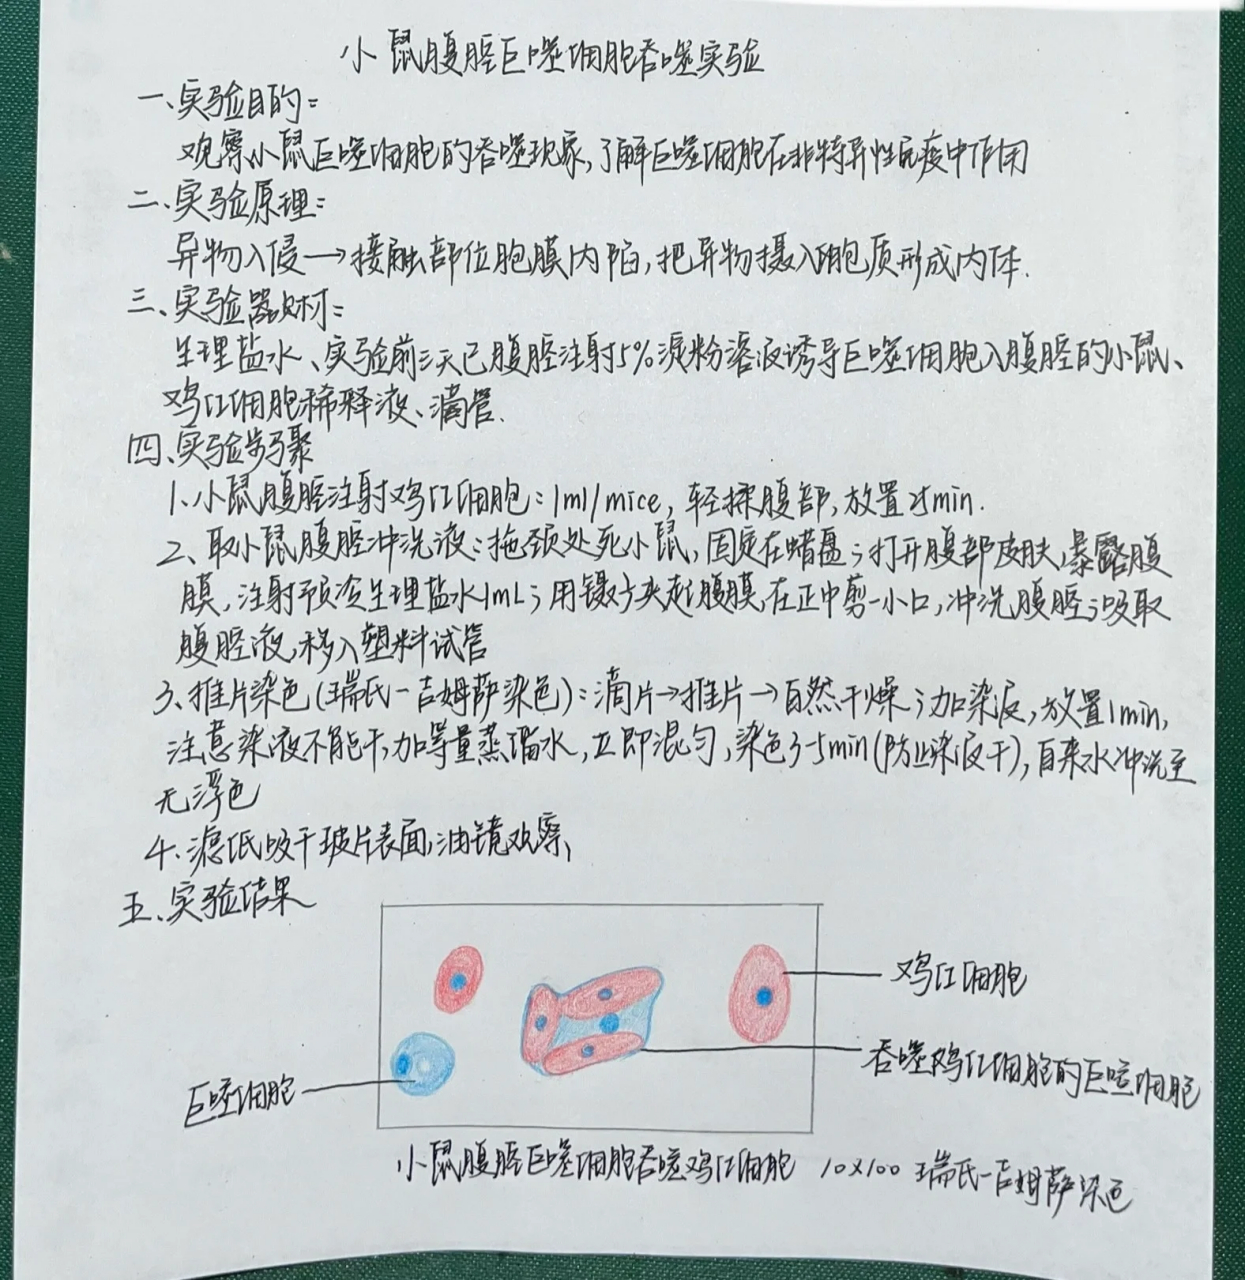 小鼠腹腔巨噬细胞吞噬实验
一、实验目的:
观察小鼠巨噬细胞的吞噬现象,了解巨噬细胞在非特异性免疫中作用
二、实验原理:
异物入侵→接触部位胞膜内陷,把异物摄入细胞质形成内体.
三、实验器材:
生理盐水、实验前三天已腹腔注射5%淀粉溶液诱导巨噬细胞入腹腔的小鼠、
鸡红细胞稀释液、滴管.
四、实验步骤
1、小鼠腹腔注射鸡红细胞:1ml/mice,轻揉腹部,放置min.
2、取小鼠腹腔冲洗液:拖颈处死小鼠,固定在蜡盘;打开腹部皮肤,暴露腹
膜,注射预温生理盐水1mL;用镊子夹起腹膜,在正中剪一小口,冲洗腹腔;吸取
腹腔液,移入塑料试管
3、推片染色(瑞氏-吉姆萨染色):滴片→推片→自然干燥;加染液,放置1min,
注意染液不能干,加等量蒸馏水,立即混匀,染色3-5min(防止染液干),自来水冲洗至
无浮色
4、滤纸吸干玻片表面,油镜观察,
五、实验结果
鸡红细胞
吞噬鸡红细胞的巨噬细胞
巨噬细胞
小鼠腹腔巨噬细胞吞噬鸡红细胞 10×100 瑞氏-吉姆萨染色